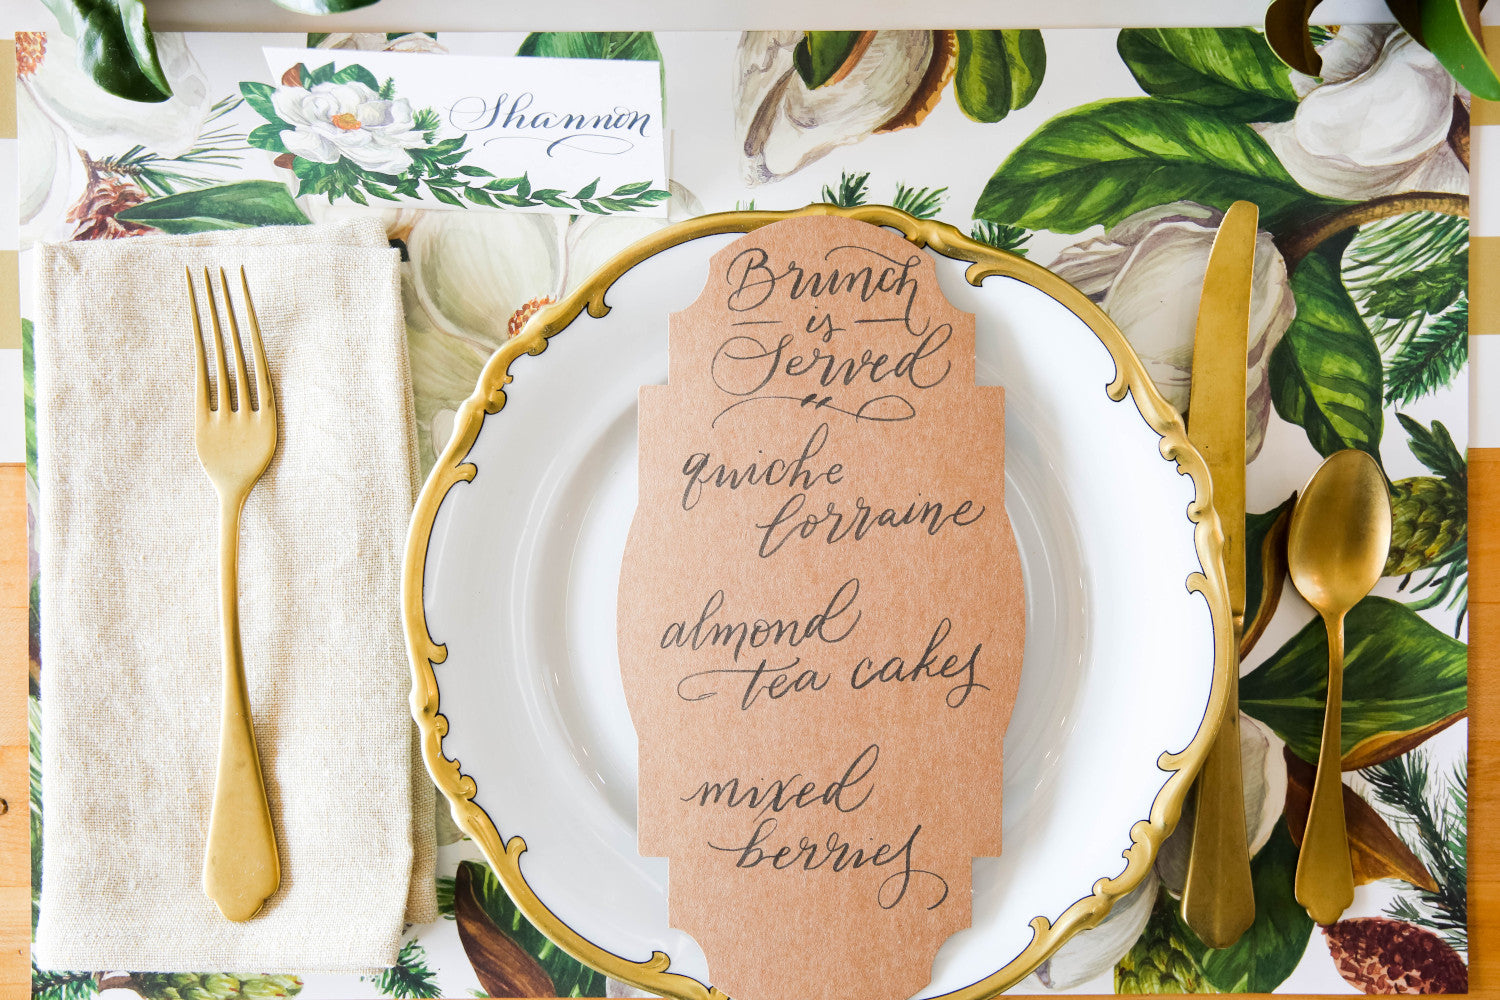 Shannon
Brunch
is
Served
quiche
lorraine
almond
tea cakes
mixed
berries